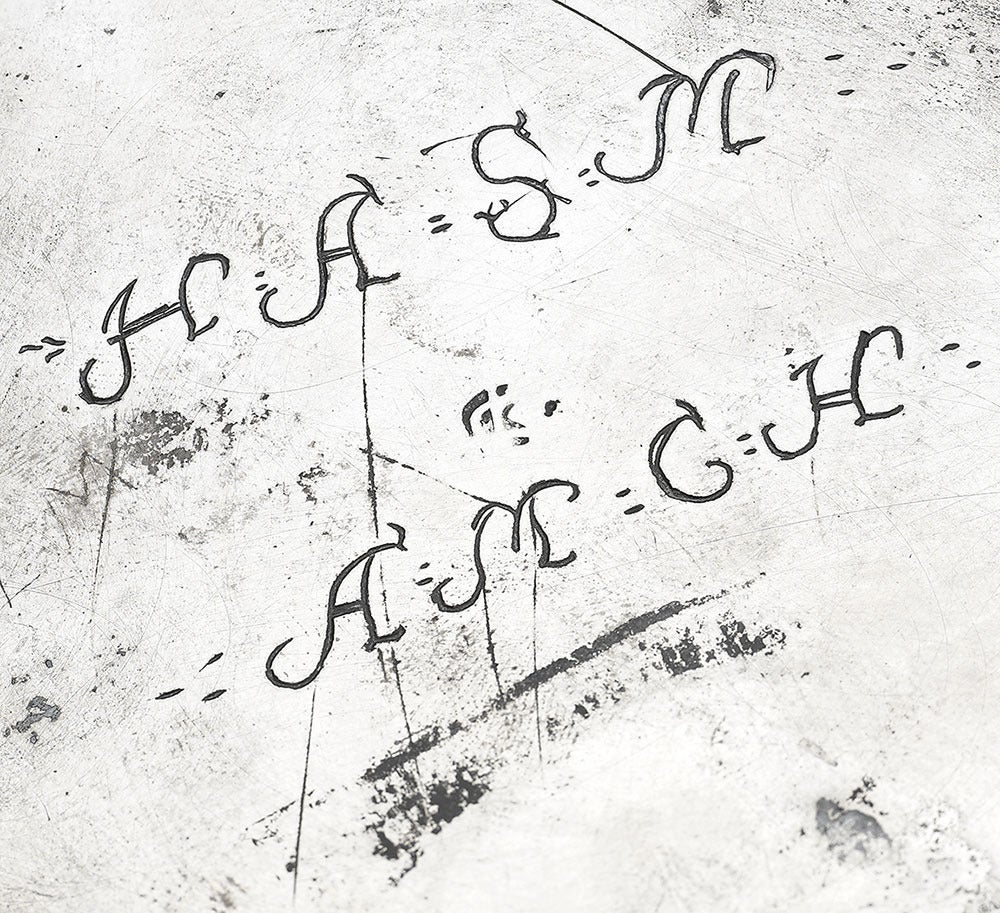 H A S M
A M C H